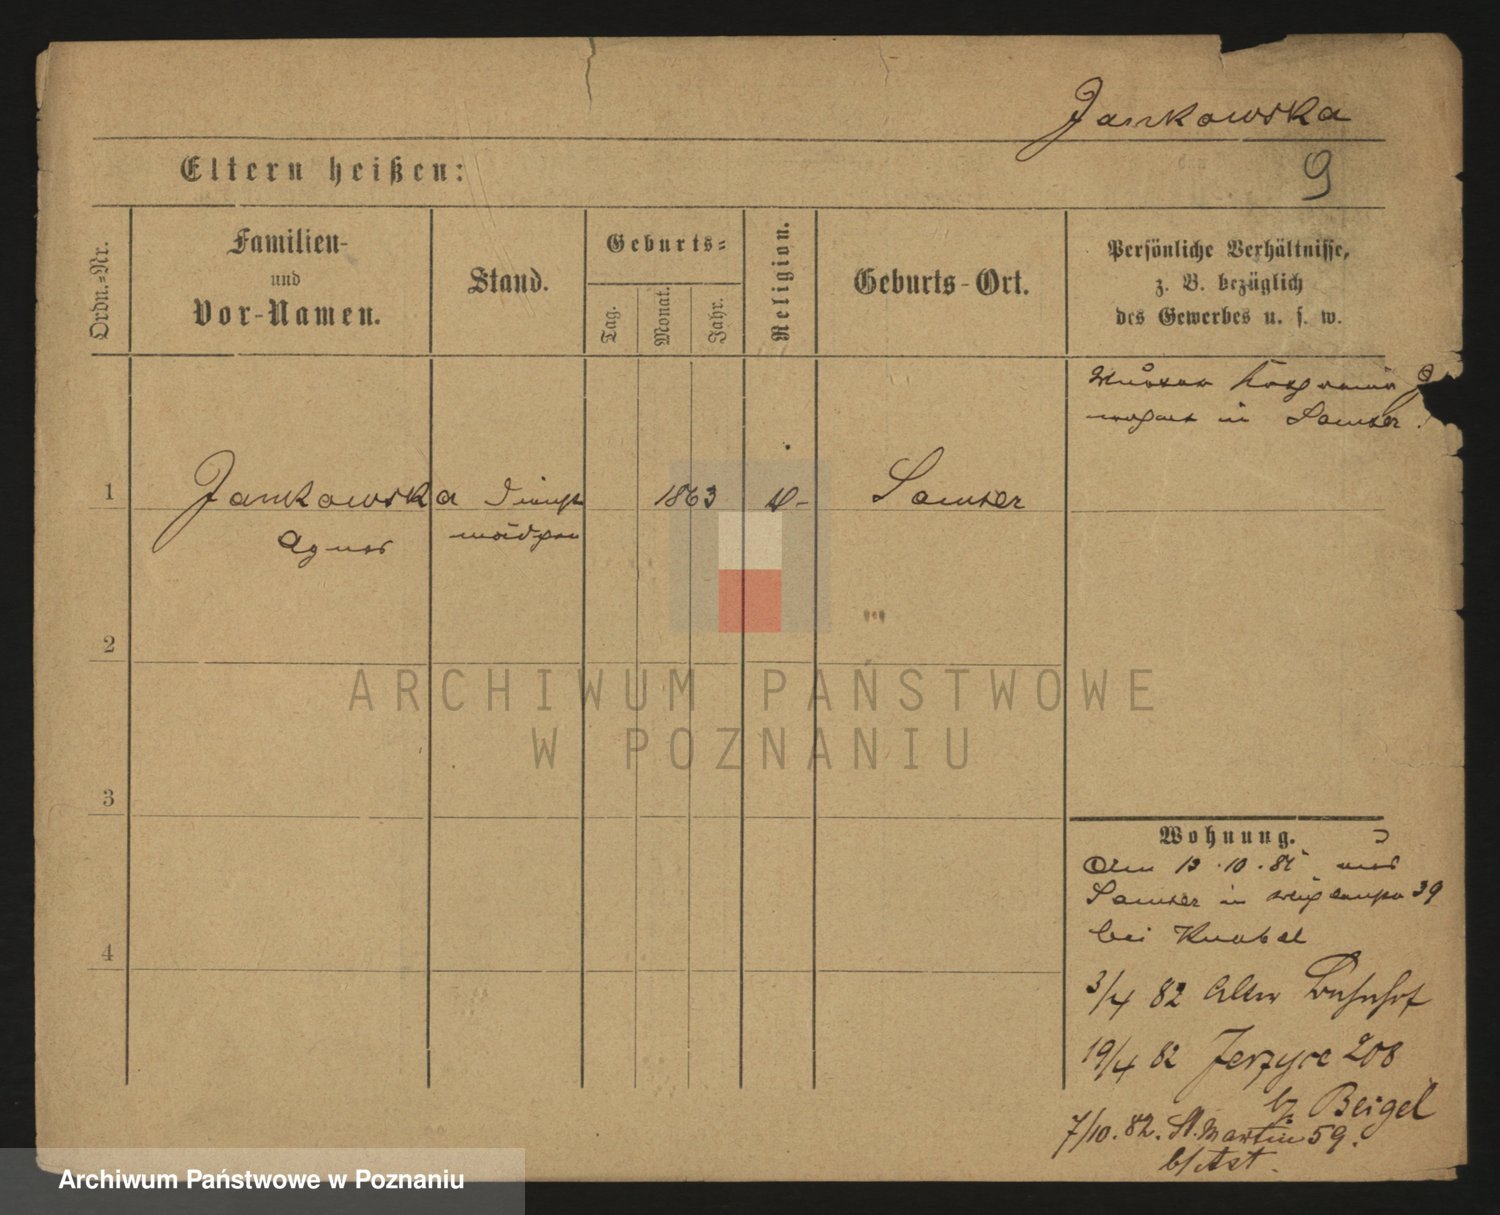 Jankowska
9
Eltern heißen:
Ordn.-Nr.
Familien-
und
Vor-Namen.
Stand.
Geburts-
Tag.
Monat.
Jahr.
Religion.
Geburts-Ort.
Persönliche Verhältnisse,
z. B. bezüglich
des Gewerbes u. s. w.
wohnt in Samter.
1 Jankowska Dienst 1863 Samter
Agnes mädchen
2
ARCHIWUM PAŃSTWOWE
W POZNANIU
3
Wohnung.
Am 13.10.81 aus
Samter in 39
bei Knabel
4
3/4 82 Alter Bahnhof
19/4 82 Jerzyce 208
bz Beigel
7/10.82. St. Martin 59.
b/ Ast.
Archiwum Państwowe w Poznaniu